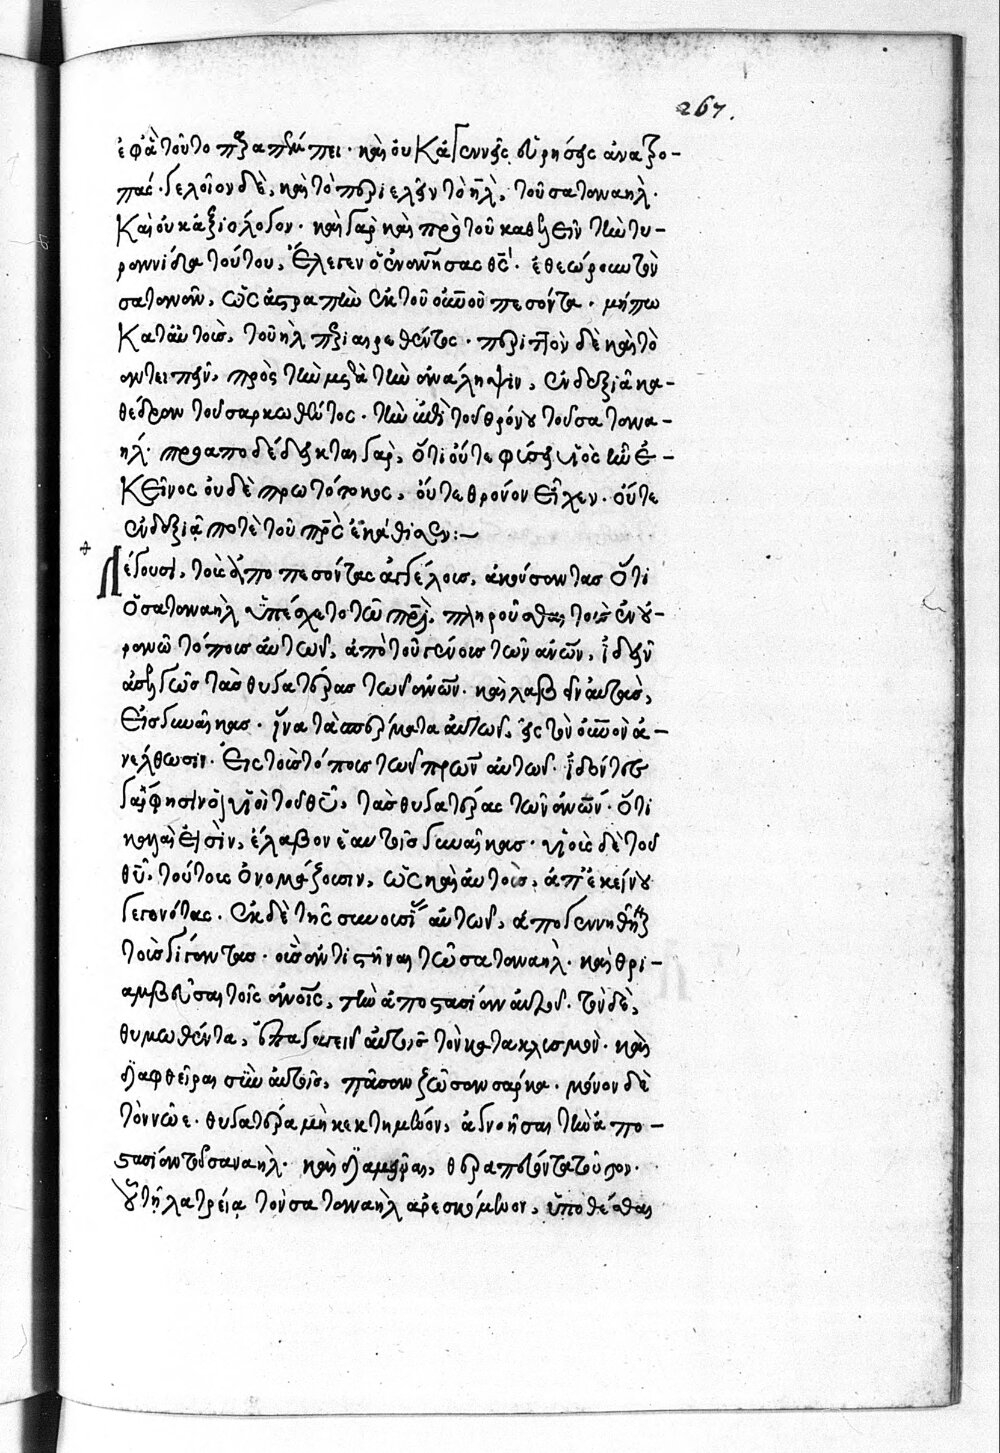 267.
ἐφᾶ τοῦτο παραπέμπει· καὶ οὐκ ἀγεννῆς εὑρήσεις ἀνατρο-
πάς. γελοῖον δὲ, καὶ τὸ περιελεῖν τὸ ἠλ, τοῦ σαταναήλ.
Καὶ οὐκ ἀξιόλογον. καὶ γὰρ καὶ πρὸ τοῦ καθελεῖν τὴν τυ-
ραννίδα τούτου, ἔλεγεν ὁ ἐνανθρωπήσας θεός· ἐθεώρουν τὸν
σατανᾶν, ὡς ἀστραπὴν ἐκ τοῦ οὐρανοῦ πεσόντα. μήπω
Κατ' αὐτοὺς, τοῦ ἠλ περιαιρεθέντος. περιττὸν δὲ καὶ τὸ
ἀντειπεῖν, πρὸς τὴν μετὰ τὴν ἀνάληψιν, ἐν δεξιᾷ κα-
θέδραν τοῦ σαρκωθέντος. τὴν ἐπὶ τοῦ θρόνου τοῦ σατανα-
ήλ. προαποδέδεικται γὰρ, ὅτι οὔτε φύσει υἱὸς ἦν ἐ-
Κεῖνος οὐδὲ πρωτότοκος, οὔτε θρόνον εἶχεν. οὔτε
ἐν δεξιᾷ ποτὲ τοῦ πατρὸς ἐκάθισεν:—
Λέγουσι, τοὺς ἀποπεσόντας ἀγγέλους, ἀκούσαντας ὅτι
ὁ σαταναὴλ ὑπέσχετο τῷ πατρὶ, πληροῦσθαι τοὺς ἐν οὐ-
ρανῷ τόπους αὐτῶν, ἀπὸ τοῦ γένους τῶν ἀνθρώπων, ἰδεῖν
ἀσελγῶς τὰς θυγατέρας τῶν ἀνθρώπων. καὶ λαβεῖν αὐτὰς,
Εἰς γυναῖκας. ἵνα τὰ σπέρματα αὐτῶν, εἰς τὸν οὐρανὸν ἀ-
νέλθωσιν. Εἰς τοὺς τόπους τῶν πατέρων αὐτῶν. ἰδόντες
γάρ φησιν οἱ υἱοὶ τοῦ θεοῦ, τὰς θυγατέρας τῶν ἀνθρώπων. ὅτι
καλαὶ εἰσὶν, ἔλαβον ἑαυτοῖς γυναῖκας. υἱοὺς δὲ τοῦ
θεοῦ, τούτους ὀνομάζουσιν, ὡς καὶ αὐτοὺς, ἀπ' ἐκείνου
γεγονότας. ἐκ δὲ τῆς συνουσίας αὐτῶν, ἀπογεννηθῆναι
τοὺς γίγαντας. οὓς ἀντιστῆναι τῷ σαταναήλ. καὶ θρι-
αμβεῦσαι τοῖς ἀνθρώποις, τὴν ἀποστασίαν αὐτοῦ. τὸν δὲ,
θυμωθέντα, ἐπαγαγεῖν αὐτοῖς τὸν κατακλυσμόν. καὶ
διαφθεῖραι σὺν αὐτοῖς, πᾶσαν ζῶσαν σάρκα. μόνον δὲ
τὸν νῶε. θυγατέρα μὴ κεκτημένον, ἀγνοῆσαι τὴν ἀπο-
στασίαν τοῦ σαναήλ. καὶ διαμεῖναι, θεραπεύοντα τοῦτον.
οὗ τῇ λατρείᾳ τὸν σαταναὴλ ἀρεσκόμενον, ὑποθέσθαι